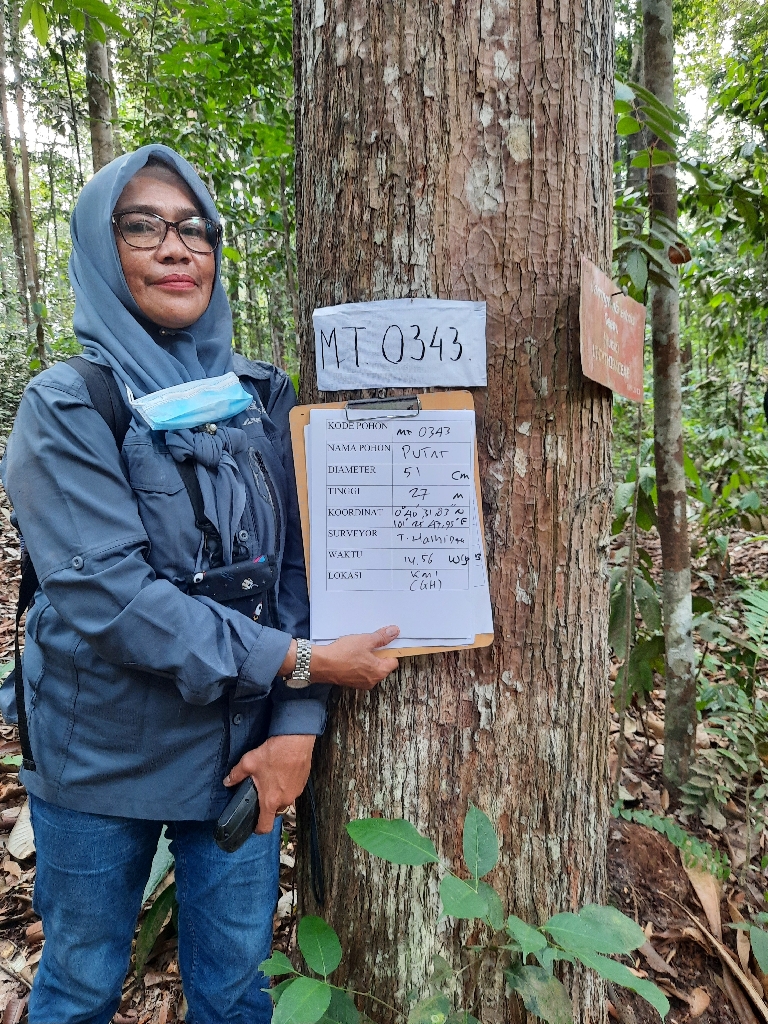 MT 0343.
KODE POHON MT 0343
NAMA POHON PUTAT
DIAMETER 51 Cm
TINGGI 27 m
KOORDINAT 0°40'31.83"N
101°
SURVEYOR T.
WAKTU 14.56
LOKASI KMI
(GH)